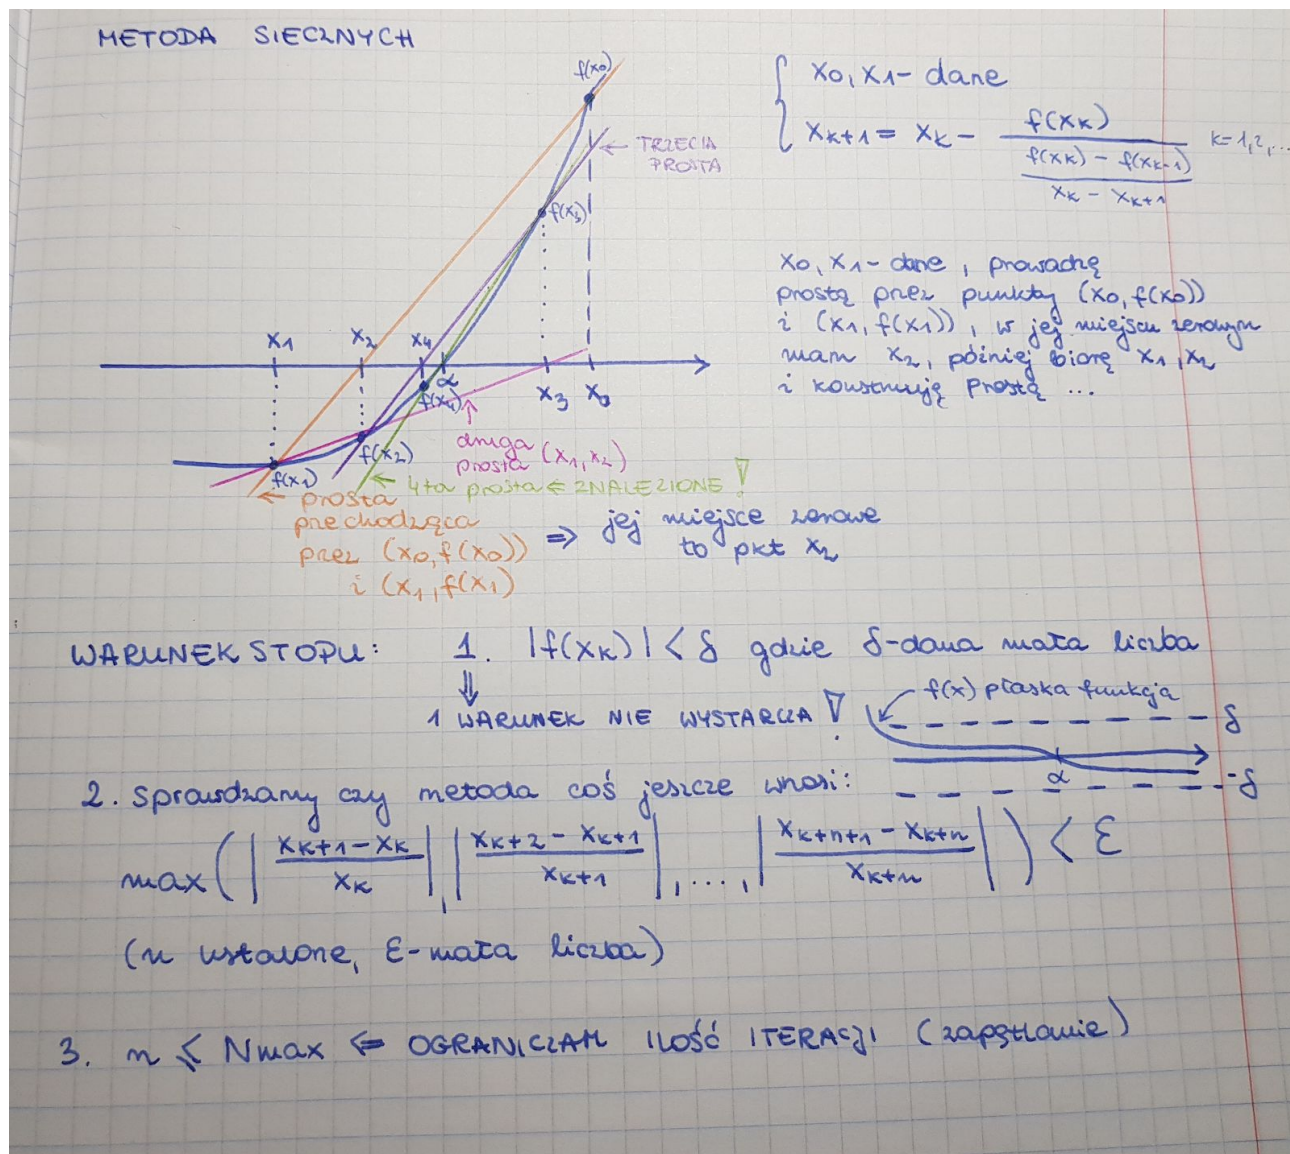 METODA SIECZNYCH
f(x₀)
TRZECIA
PROSTA
f(x₃)
x₁ x₂ x₄ α x₃ x₀
f(x₄)
f(x₂)
f(x₁)
druga
prosta (x₁,x₂)
4ta prosta ⇐ ZNALEZIONE!
prosta
przechodząca
przez (x₀,f(x₀))
i (x₁,f(x₁)
⇒ jej miejsce zerowe
to pkt x₂
{ x₀,x₁ - dane
x_{k+1} = x_k - f(x_k) / ((f(x_k) - f(x_{k-1})) / (x_k - x_{k+1})) k=1,2,...
x₀,x₁ - dane, prowadzę
prostą przez punkty (x₀,f(x₀))
i (x₁,f(x₁)), w jej miejscu zerowym
mam x₂, później biorę x₁,x₂
i konstruuję prostą ...
WARUNEK STOPU: 1. |f(x_k)| < δ gdzie δ-dana mała liczba
⇓
1 WARUNEK NIE WYSTARCZA!
f(x) płaska funkcja
δ
α
-δ
2. Sprawdzamy czy metoda coś jeszcze wnosi:
max(|(x_{k+1} - x_k)/x_k|, |(x_{k+2} - x_{k+1})/x_{k+1}|, ..., |(x_{k+n+1} - x_{k+n})/x_{k+n}|) < ε
(n ustalone, ε-mała liczba)
3. n ≤ Nmax ⇐ OGRANICZAM ILOŚĆ ITERACJI (zapętlanie)